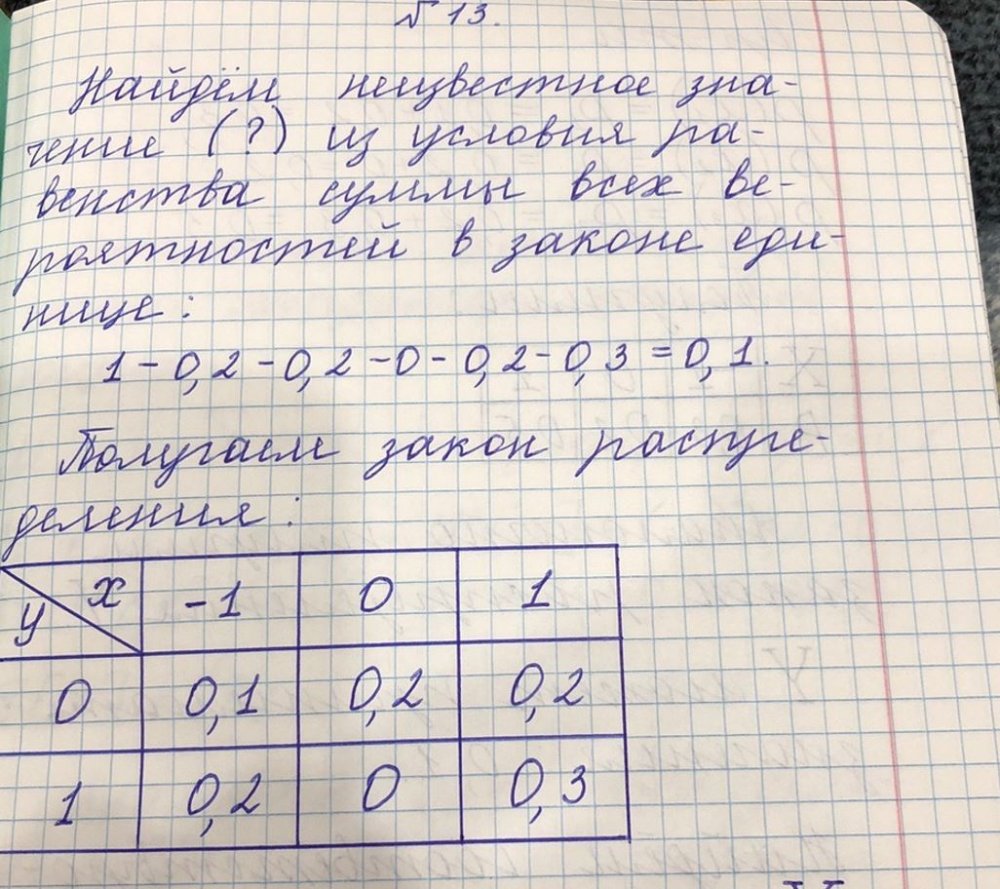 № 13.
Найдём неизвестное зна-
чение (?) из условия ра-
венства суммы всех ве-
роятностей в законе еди-
нице:
1 - 0,2 - 0,2 - 0 - 0,2 - 0,3 = 0,1.
Получаем закон распре-
деления:
y x -1 0 1
0 0,1 0,2 0,2
1 0,2 0 0,3